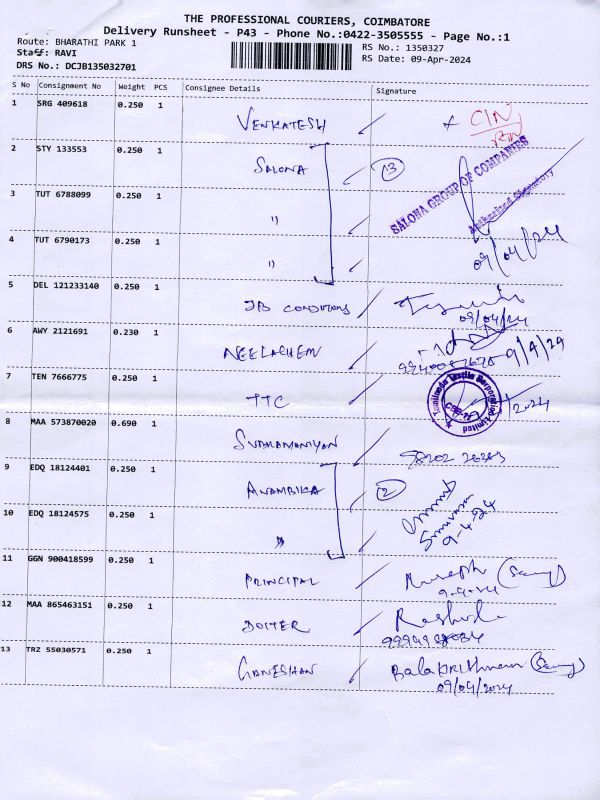 THE PROFESSIONAL COURIERS, COIMBATORE
Delivery Runsheet - P43 - Phone No.:0422-3505555 - Page No.:1
Route: BHARATHI PARK 1
RS No.: 1350327
Staff: RAVI
RS Date: 09-Apr-2024
DRS No.: DCJB135032701
S No Consignment No Weight PCS Consignee Details Signature
1 SRG 409618 0.250 1
VENKATESH
2 STY 133553 0.250 1
SALONA 13
SALONA GROUP OF COMPANIES
Authorised Signatory
3 TUT 6788099 0.250 1
"
4 TUT 6790173 0.250 1
" 09/04/24
5 DEL 121233140 0.250 1
JB
09/04/24
6 AWY 2121691 0.230 1
NEELACHEM 9/4/24
7 TEN 7666775 0.250 1
TTC
Tamilnadu Textile Corporation Limited
8 MAA 573870020 0.690 1
SUBRAMANIYAN
9 EDQ 18124401 0.250 1
ANAMBIKA 2
10 EDQ 18124575 0.250 1
"
9-4-24
11 GGN 900418599 0.250 1
PRINCIPAL
12 MAA 865463151 0.250 1
13 TRZ 55030571 0.250 1
GANESHAN
09/04/2024